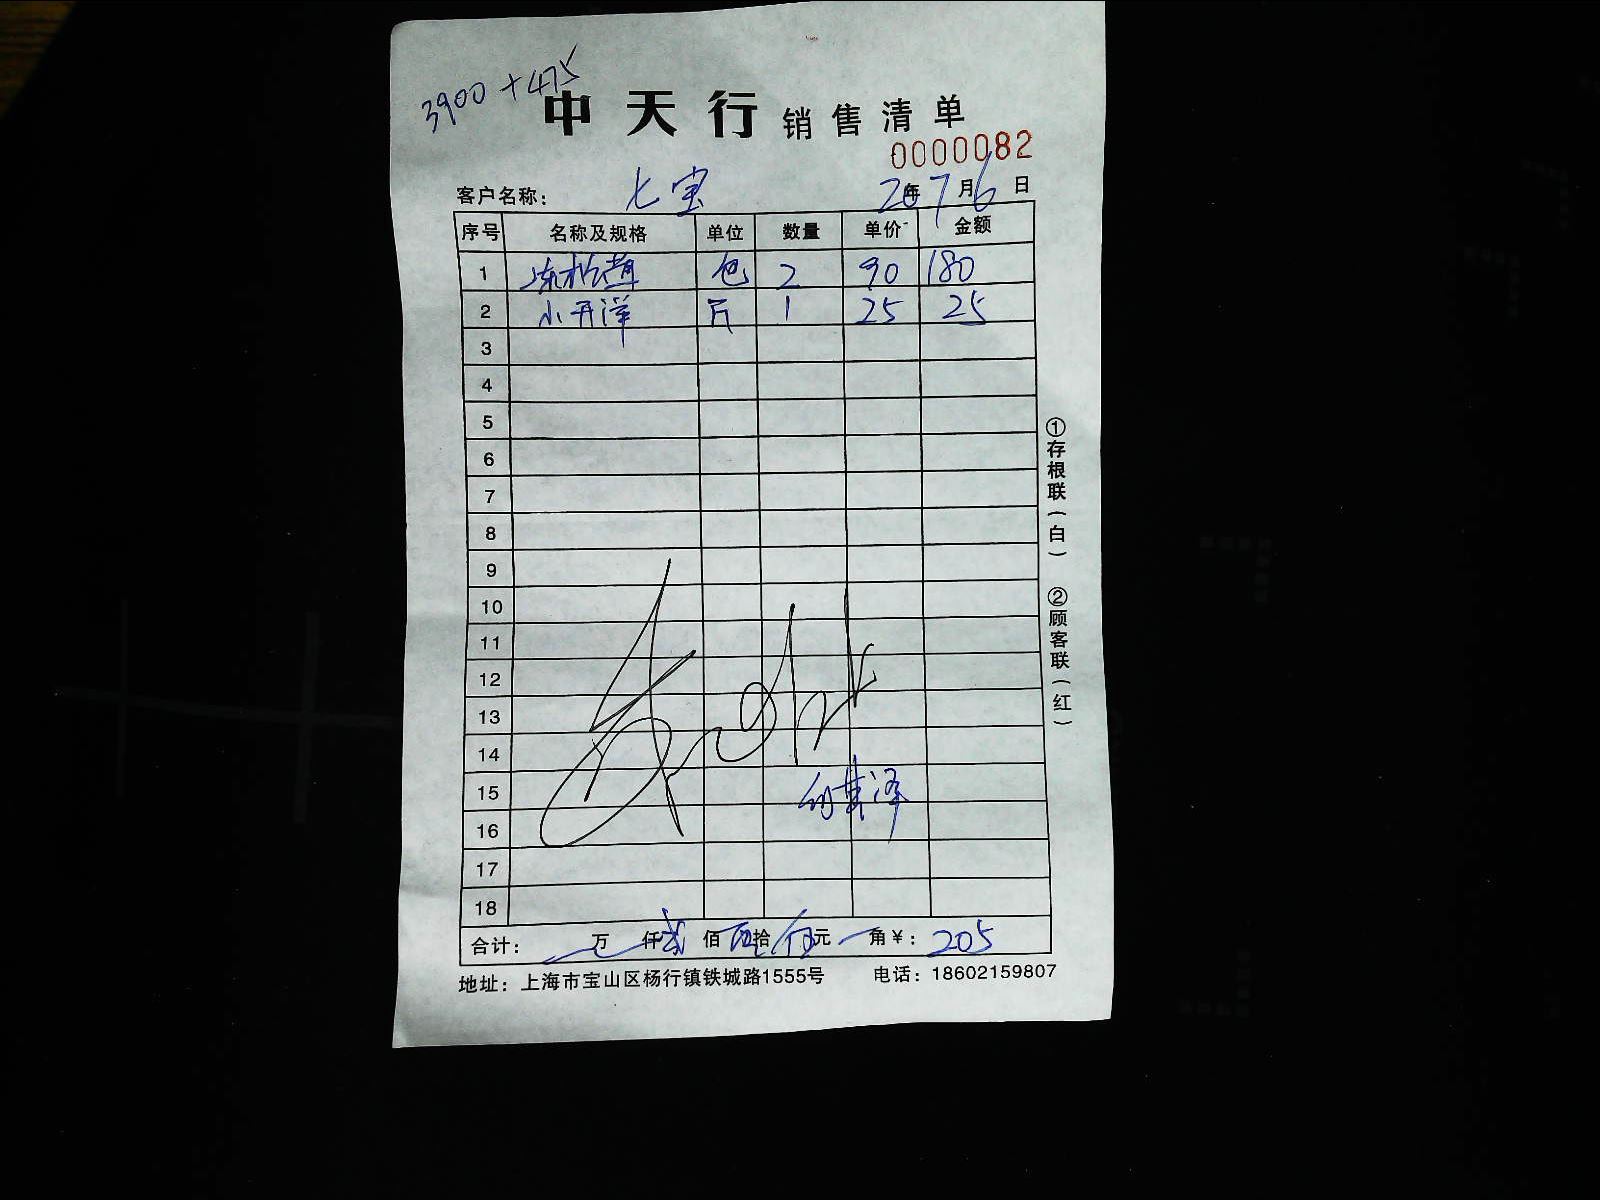 3900+475
中天行 销售清单
0000082
客户名称： 七宝 20年7月6日
序号 名称及规格 单位 数量 单价 金额
1 包 2 90 180
2 小开洋 斤 1 25 25
3
4
5
6
7
8
9
10
11
12
13
14
15
16
17
18
合计： 万 仟 贰 佰 拾 伍 元 角 ¥： 205
地址：上海市宝山区杨行镇铁城路1555号 电话：18602159807
①存根联（白） ②顾客联（红）